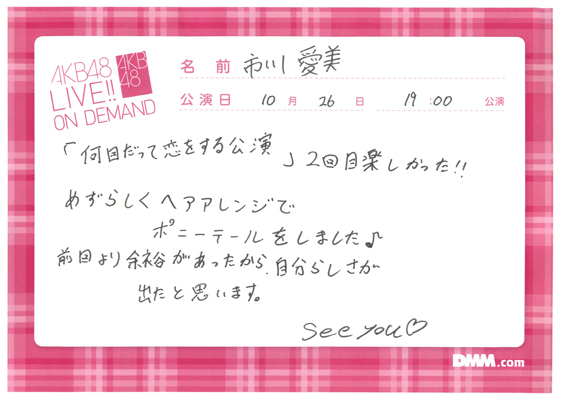 AKB48
LIVE!!
ON DEMAND
AKB
48
名前 市川 愛美
公演日 10月 26日 19:00 公演
「何回だって恋をする公演」2回目楽しかった!!
めずらしくヘアアレンジで
ポニーテールをしました♪
前回より余裕があったから、自分らしさが
出たと思います。
see you♡
DMM.com